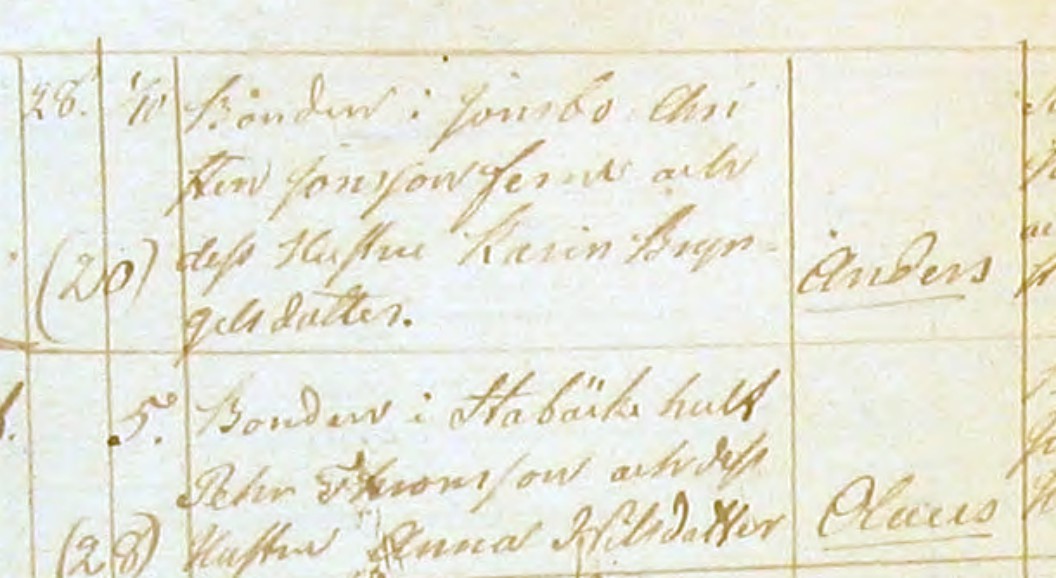 28. 1/10 Bonden i Jonsbo Chri
sten Jonsson och
(20) dess Hustru Karin Bryn-
gelsdotter.
Anders
5. Bonden i Stabäckshult
Pehr Thronsson och dess
(28) Hustru Anna Nilsdotter
Olaus